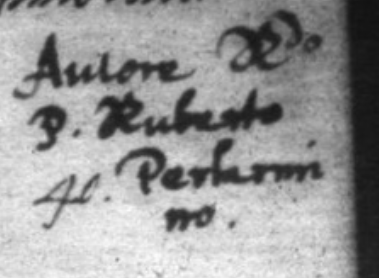 Autore Rdo
P. Ruberto
40. Perlarmi
no.